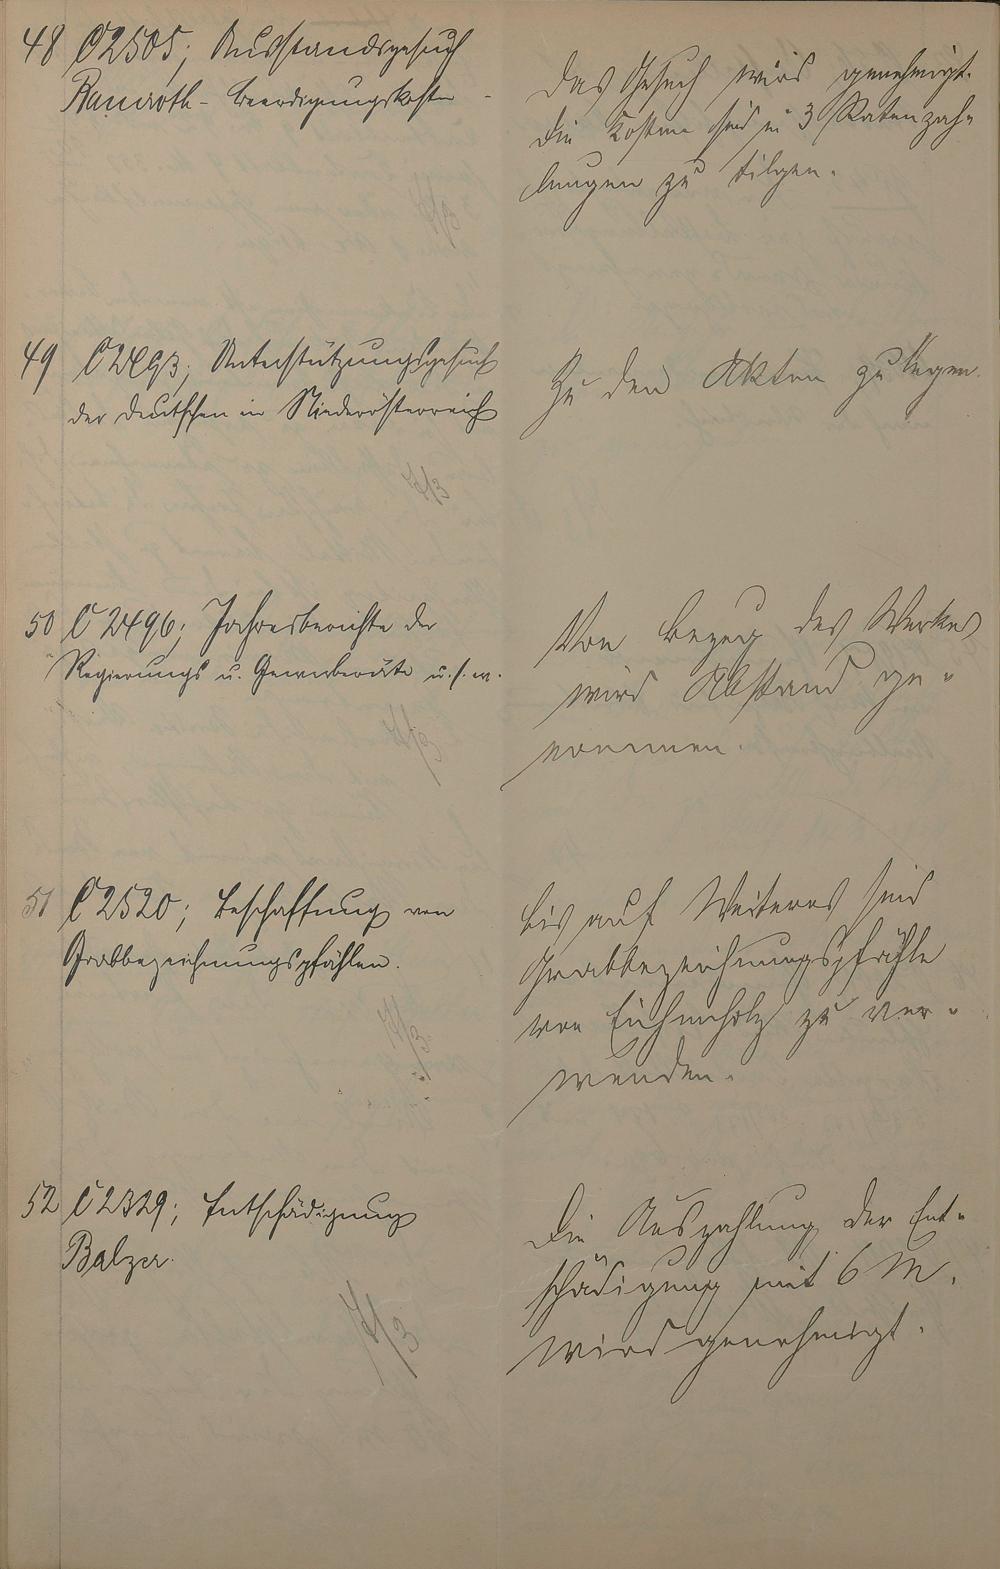 48 C 2505; Ausstandsgesuch
Banroth - Beerdigungskosten -
Das Gesuch wird genehmigt.
Die Kosten sind in 3 Ratenzah-
lungen zu tilgen.
49 C 2493; Unterstützungsgesuch
der Deutschen in Niederösterreich
Zu den Akten zu legen.
50 C 2496; Jahresberichte der
Regierungs u. Gewerberäte u.s.w.
Von Bezug des Werkes
wird Abstand ge-
nommen.
51 C 2520; Beschaffung von
Grabbezeichnungspfählen.
Bis auf Weiteres sind
Grabbezeichnungspfähle
von Eichenholz zu ver-
wenden.
52 C 2329; Entschädigung
Balzer.
Die Auszahlung der Ent-
schädigung mit 6 M.
wird genehmigt.